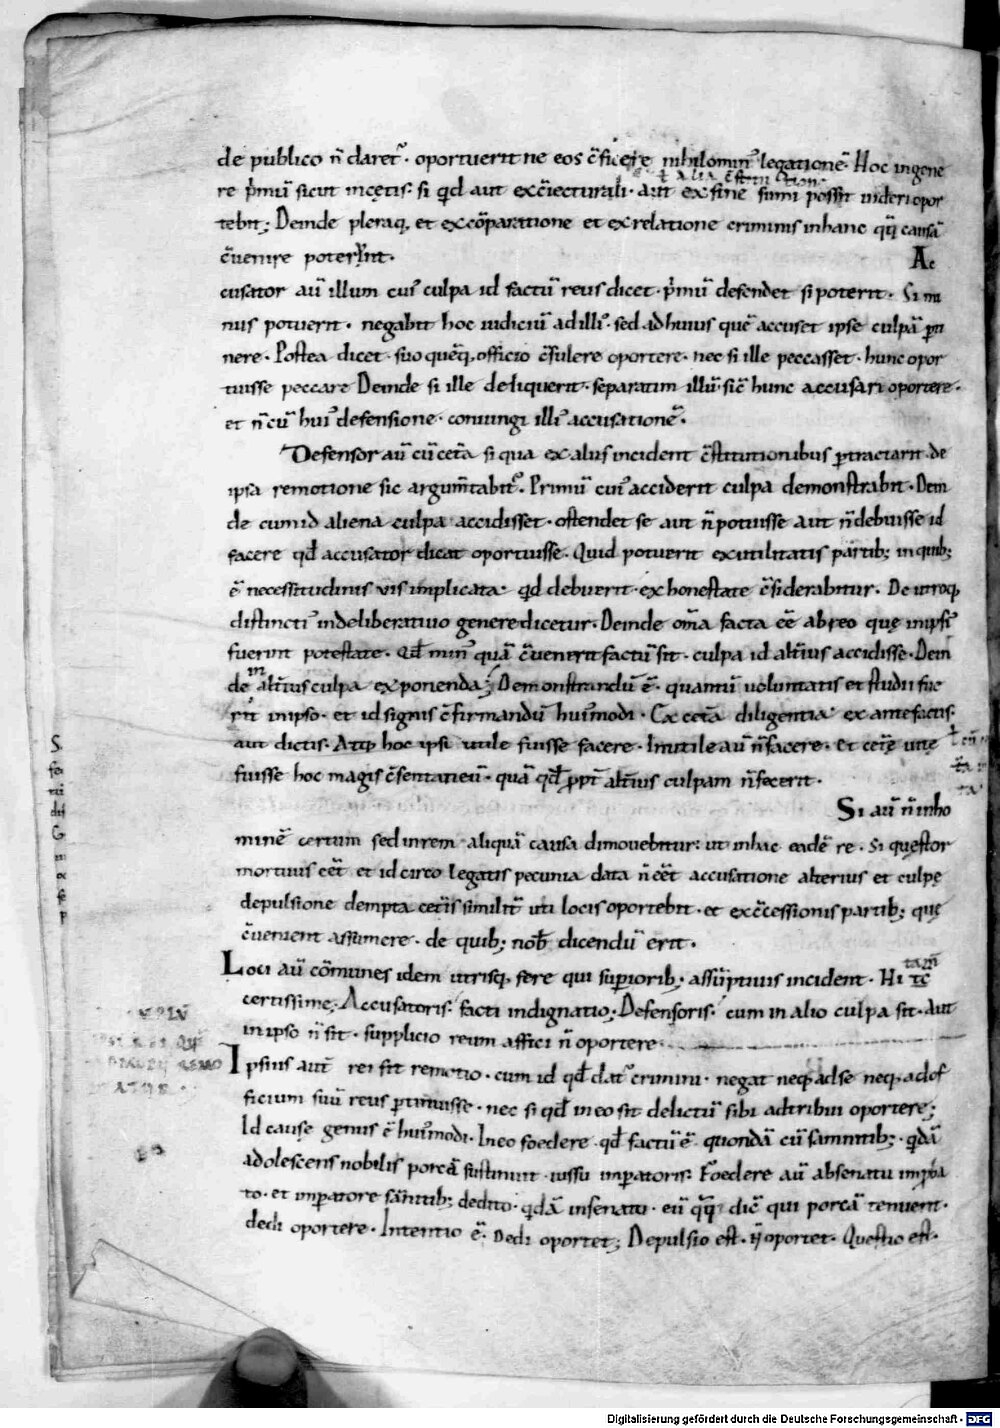 de publico n̄ daret᷒. oportuerit ne eos c̄ficere nihilomin᷒ legationē. Hoc ingene
ł alia c̄stitutione
re p̄mū sicut incȩtis: si qd aut exc̄iecturali. aut ex fine sumi possit uideri opor
tebit; Deinde pleraq; et excōparatione et exrelatione criminis inhanc qq̄ causā
c̄uenire poterunt.
Ac
cusator aū illum cui᷒ culpa id factū reus dicet. p̄mū defendet si poterit. Si mi
nus potuerit. negabit hoc iudiciū ad illi᷒. sed ad huius quē accuset ipse culpā ꝑti
nere. Postea dicet. suo quēq; officio c̄sulere oportere. nec si ille peccasset. hunc opor
tuisse peccare Deinde si ille deliquerit. separatim illū sic̄ hunc accusari oportere.
et n̄ cū hui᷒ defensione. coniungi illi᷒ accusationē.
Defensor aū cū cetā si qua ex aliis incident c̄stitutionibus ꝑtractarit. de
ipsa remotione sic argum̄tabit᷒. Primū cui᷒ acciderit culpa demonstrabit. Dein
de cum id aliena culpa accidisset. ostendet se aut n̄ potuisse aut n̄ debuisse id
facere qd̄ accusator dicat oportuisse. Quid potuerit exutilitatis partib; inquib;
ē necessitudinis uis implicata. qd debuerit. ex honestate c̄siderabitur. De utroq;
distincti᷒ indeliberatiuo genere dicetur. Deinde om̄a facta eē ab reo quȩ inipsi᷒
fuerint potestate. Qd̄ min᷒ quā c̄uenerit factū sit. culpa id alt̄ius accidisse. Dein
de in alt̄ius culpa exponenda; Demonstrandū ē. quantū uoluntatis et studii fue
rit inipso. et id signis c̄firmandū hui᷒modi. Ex cetā diligentia ex antefactis.
aut dictis. Atq; hoc ipsi utile fuisse facere. Inutile aū n̄ facere. et
fuisse hoc magis c̄sentaneū. quā qd̄ ꝓpt̄ alt̄ius culpam n̄ fecerit.
Si aū n̄ inho
minē certum sed inrem aliquā causa dimouebitur: ut inhac eadē re. Si quȩstor
mortuus cēt et idcirco legatis pecunia data n̄ cēt accusatione alterius et culpȩ
depulsione dempta cet̄is similit̄ uti locis oportebit. et exc̄cessionis partib; quȩ
c̄uenient assumere. de quib; nob̄ dicendū erit.
Loci aū cōmunes idem utrisq; fere qui supiorib; assūptiuis incident. Hi
certissime; Accusatoris. facti indignatio; Defensoris. cum in alio culpa sit. Aut
in ipso n̄ sit. supplicio reum affici n̄ oportere.
Ipsius aut̄ rei fit remotio. cum id qd̄ dat᷒ crimini. negat neq; ad se neq; ad of
ficium suū reus ꝑtinuisse. nec si qd̄ in eo sit delictū sibi adtribui oportere;
Id causȩ genus ē hui᷒modi. Ineo foedere qd̄ factū ē quondā cū samnitib; qdā
adolescens nobilis porcā sustinuit iussu imꝑatoris. Foedere aū ab senatu imp̄ba
to. et imꝑatore samnitib; dedito. qdā insenatu. eū qq̄ dic̄ qui porcā tenuerit.
dedi oportere. Intentio ē. Dedi oportet; Depulsio est. n̄ oportet. Questio est.